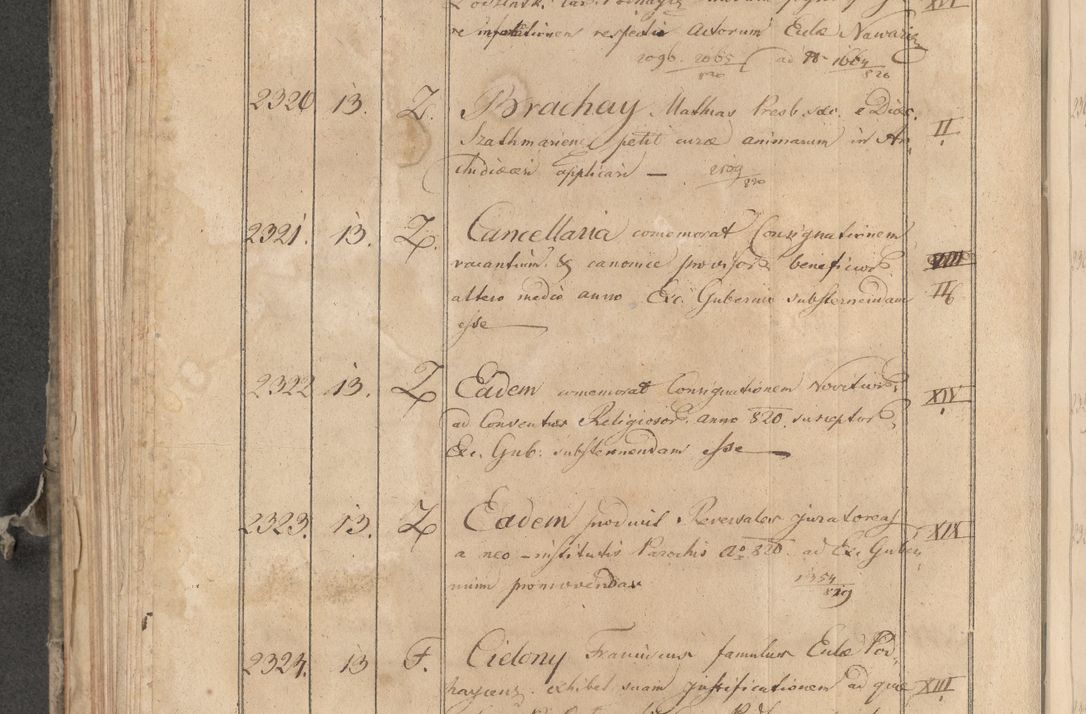 re intentionem respectu Actorum Eccl̃æ Nawariẽ
2096. 2065/820 ad N 1664/826
2320 13. Z. Brachay Mathias Presb. sæc. e Diœc. II
Szathmariensi petit curæ animarum in Ar
chidiœcesi applicari — 2109/820
2321. 13. Z. Cancellaria comemorat Consignationem
vacantium & canonice provisor beneficior XVIII
altero medio anno Exc. Gubernio substernendam II
esse
2322 13. Z Eadem comemorat Consignationem Novitior XIV
ad Conventus Religiosor. anno 820. susceptor
Exc. Gub. substernendam esse
2323. 13. Z Eadem producit Reversales juratoreas XIX
a neo-institutis Parochis Aº 820. ad Exc. Guber
nium promovendas 1354/829
2324. 13 F. Cidony Franciscus famulus Eccl̃æ Por
hayiens. exhibet suam justificationem ad quæ XIII